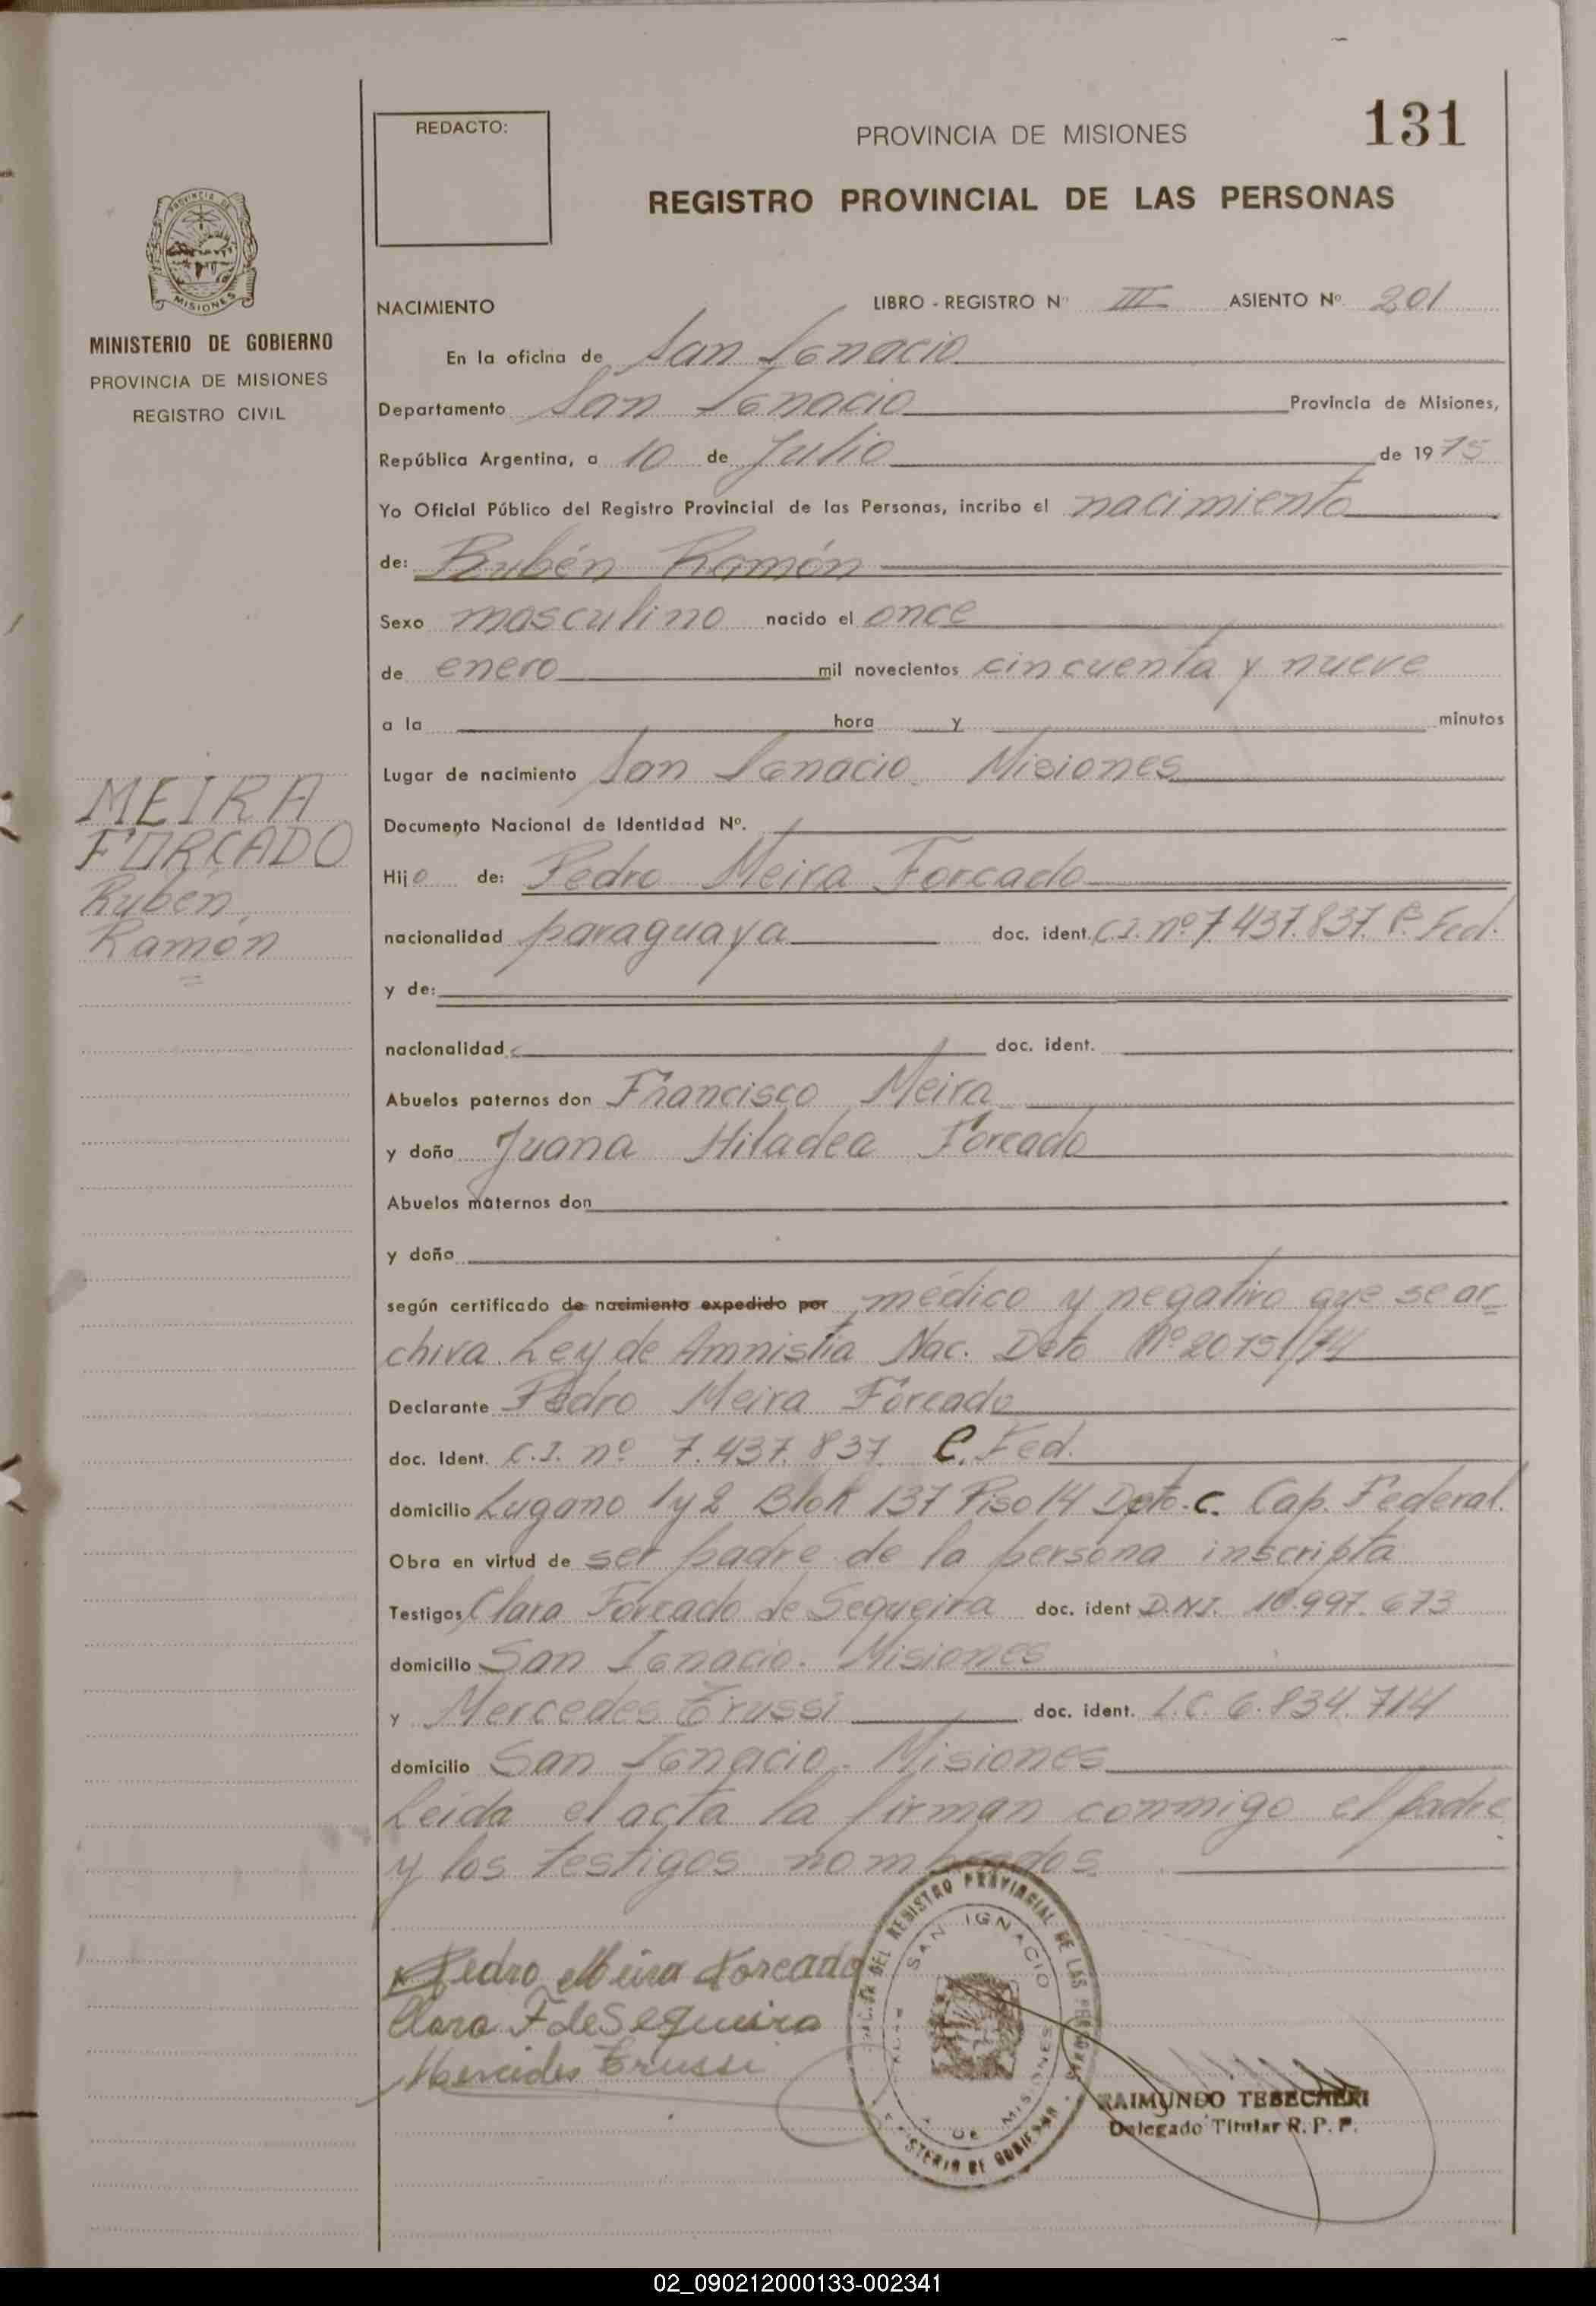 131
REDACTO:
PROVINCIA DE MISIONES
REGISTRO PROVINCIAL DE LAS PERSONAS
MISIONES
MINISTERIO DE GOBIERNO
PROVINCIA DE MISIONES
REGISTRO CIVIL
NACIMIENTO LIBRO - REGISTRO Nº III ASIENTO Nº 201
En la oficina de San Ignacio
Departamento San Ignacio Provincia de Misiones,
República Argentina, a 10 de Julio de 1975
Yo Oficial Público del Registro Provincial de las Personas, incribo el nacimiento
de: Rubén Ramón
Sexo masculino nacido el once
de enero mil novecientos cincuenta y nueve
a la hora y minutos
Lugar de nacimiento San Ignacio Misiones
MEIRA
FORCADO
Rubén
Ramón
Documento Nacional de Identidad Nº.
Hijo de: Pedro Meira Forcado
nacionalidad paraguaya doc. ident. C.I. nº 7.437.837. P. Fed.
y de:
nacionalidad doc. ident.
Abuelos paternos don Francisco Meira
y doña Juana Hiladea Forcado
Abuelos maternos don
y doña
según certificado de nacimiento expedido por médico y negativo que se ar
chiva. Ley de Amnistia Nac. Deto Nº 20751/74
Declarante Pedro Meira Forcado
doc. Ident. C.I. nº 7.437.837 C. Fed.
domicilio Lugano 1 y 2 Blok 137 Piso 14 Dpto. C. Cap. Federal.
Obra en virtud de ser padre de la persona inscripta
Testigos Clara Forcado de Sequeira doc. ident D.N.I. 10.997.673
domicilio San Ignacio. Misiones
y Mercedes Erussi doc. ident. L.C. 6.834.714
domicilio San Ignacio. Misiones
Leida el acta la firman conmigo el padre
y los testigos nombrados
Pedro Meira Forcado
Clara F de Sequeira
Mercedes Erussi
DEL REGISTRO PROVINCIAL DE LAS
SAN IGNACIO
DE MISIONES
RAIMUNDO TEBECHERI
Delegado Titular R. P. P.
02_090212000133-002341